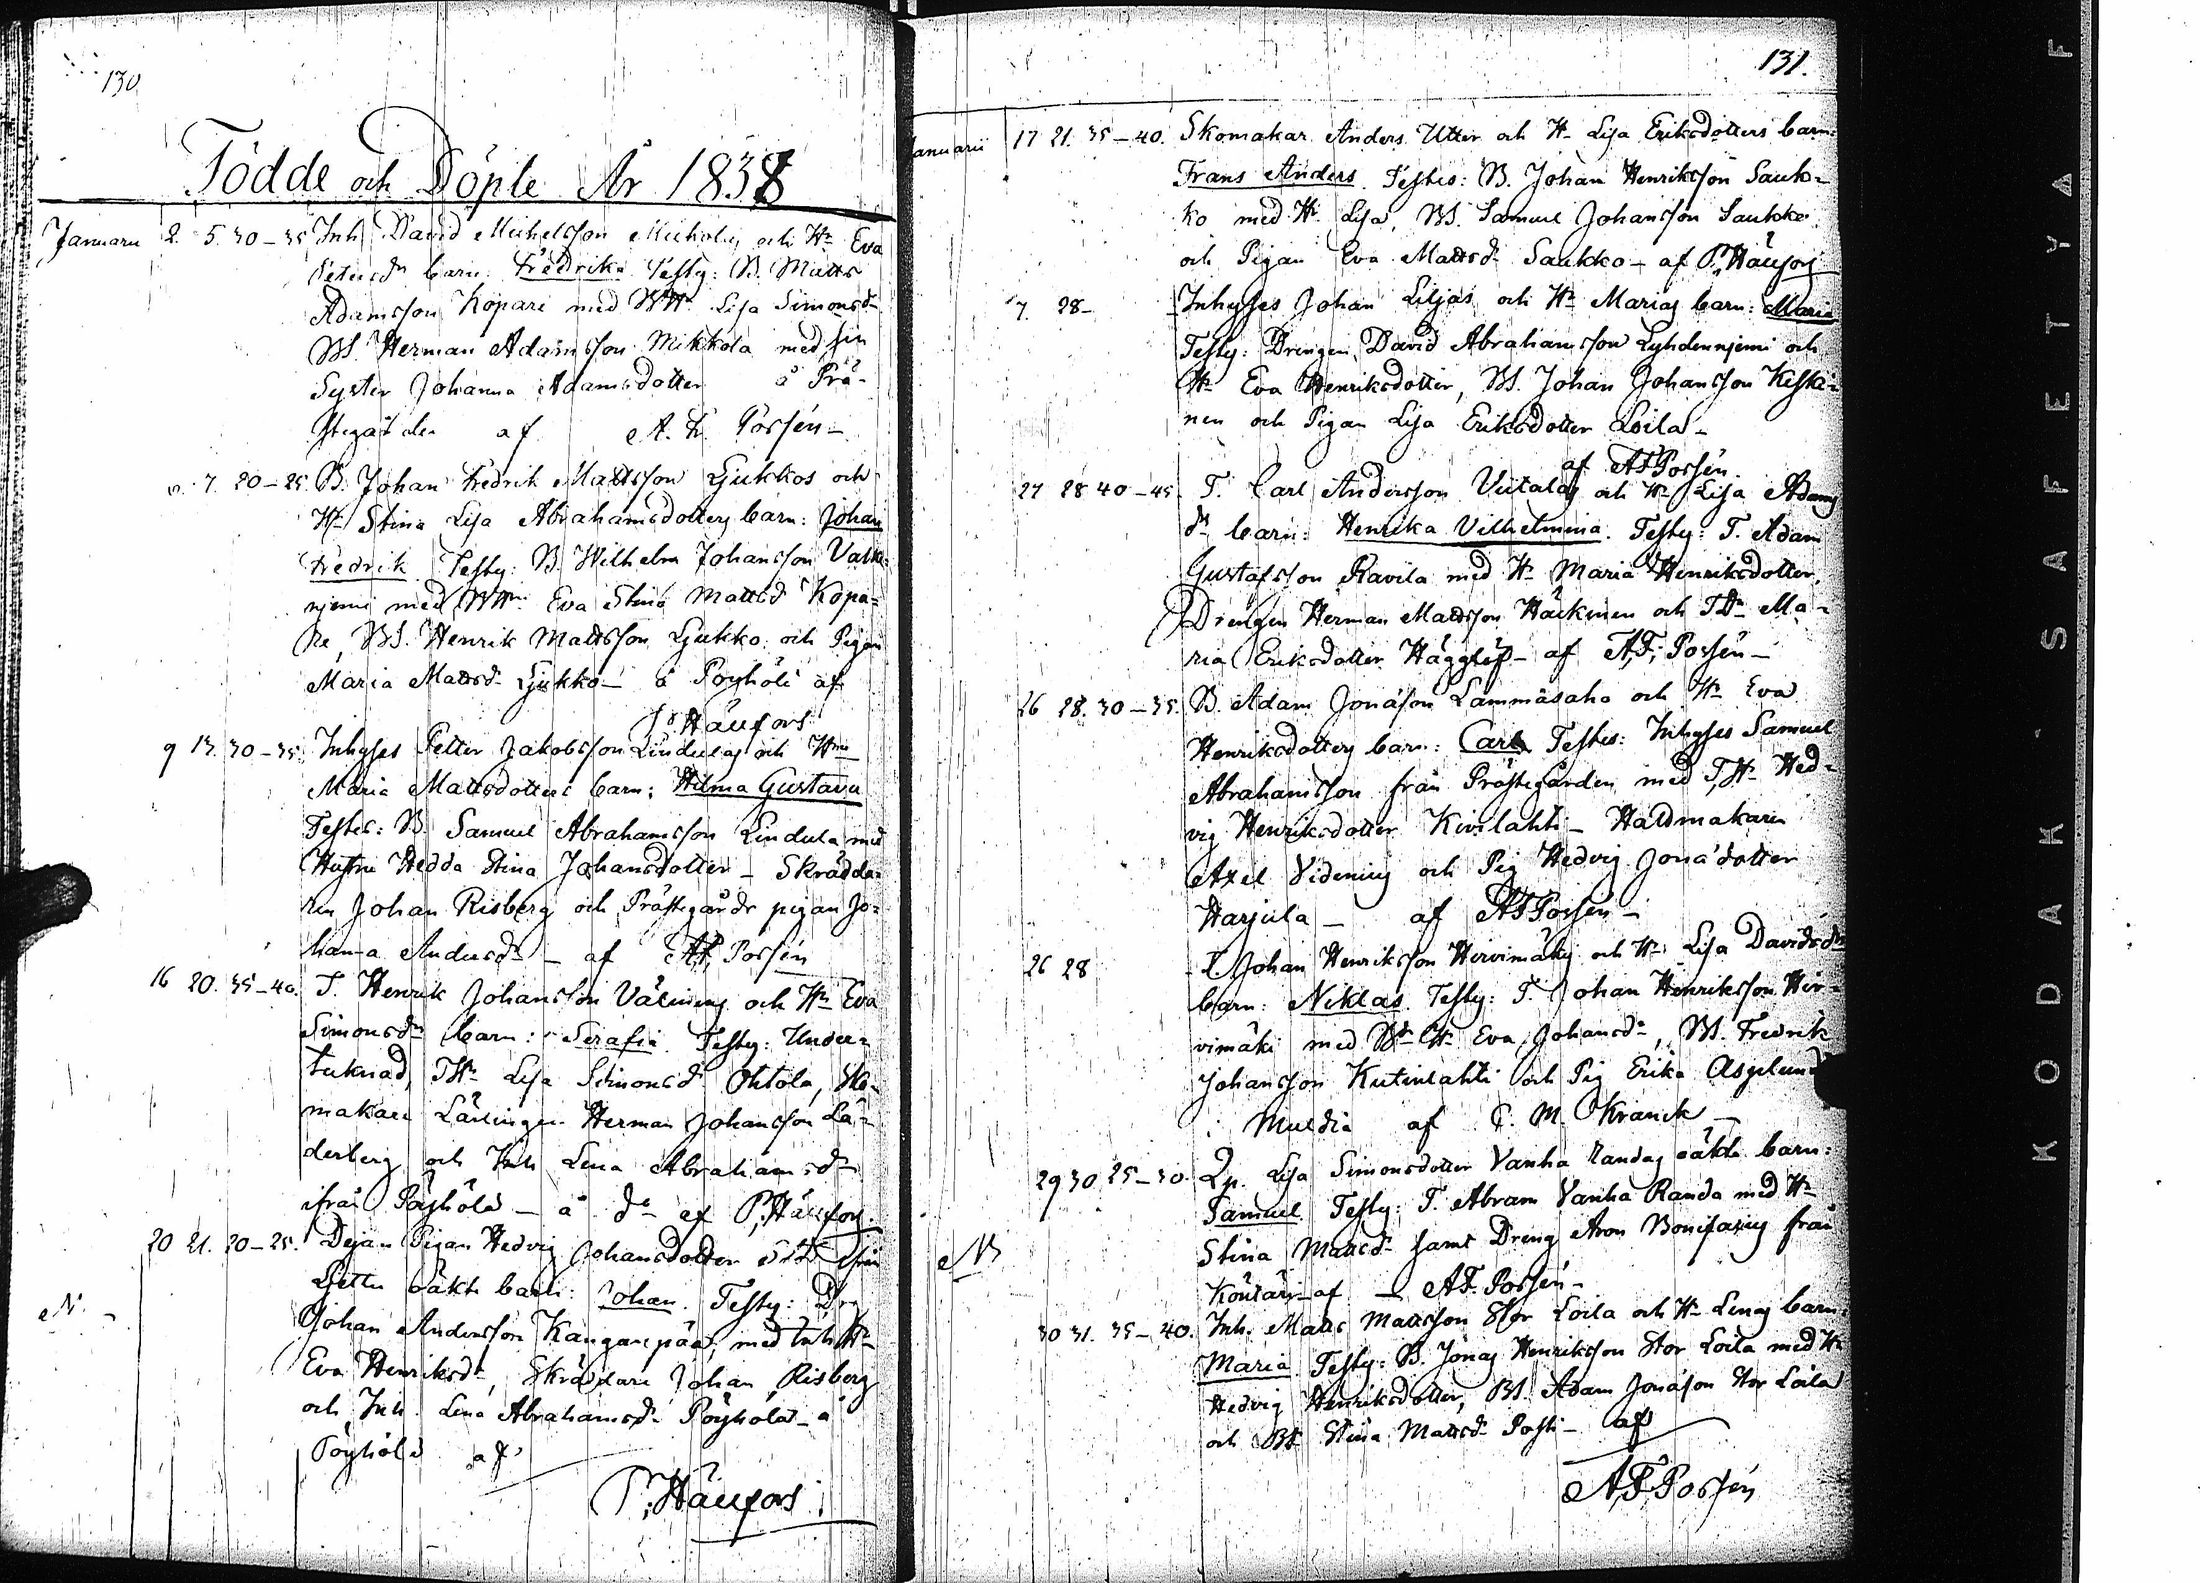 130
Födde och Döpte År 1838
Januarii 2. 5. 30-35 Inh. David Michelsson och Hu Eva
barn: Fredrika Testes: B. Matts
Adamsson Kopare med BHu Lisa Simonsd.
BS. Herman Adamsson Mikkola med sin
Syster Johanna Adamsdotter å Prä-
stegården af A. F. Possén -
7. 20-25. B. Johan Fredrik Mattsson Ljukkos och
Hu Stina Lisa Abrahamsdotters barn: Johan
Fredrik Testes: B. Wilhelm Johansson
njemi med Eva Stina Mattsd Kopa=
re, BS. Henrik Mattsson Ljukko och Pigan
Maria Mattsd. Ljukko - å Pöyhölä af
Häufors
9 13. 30-35. Inhyses Petter Jakobsson Lindulas och Hu
Maria Mattsdotters barn: Hilma Gustava
Testes: B. Samuel Abrahamsson Lindula med
Hustru Hedda Stina Johansdotter - Skrädda=
ren Johan Risberg och Prästegårds pigan Jo=
hanna Andersd. - af AF. Possén
16 20. 35-40. T. Henrik Johansson och Hu Eva
Simonsdr barn: Serafia Testes: Under-
tecknad, THu Lisa Simonsd Ohtola, Sko-
makare Lärlingen Herman Johansson Lä-
derberg och Inh Lena Abrahamsdr
ifrån Pöyhölä - å do af P. Häufors.
20 21. 20-25. Pigan Hedvig Johansdotter
oäkta barn: Johan. Testes: Dr
Johan Andersson Kangaspää, med Inh Hu
Eva Henriksdr, Skräddare Johan Risberg
och Inh. Lena Abrahamsd. Pöyhölä - å
Pöyhölä af
P. Häufors
131.
Januarii 17 21. 35-40. Skomakar Anders Utter och Hu Lisa Eriksdotters barn:
Frans Anders. Testes: B. Johan Henriksson Sauk=
ko med Hu Lisa, BS. Samuel Johansson Saukko
och Pigan Eva Mattsd. Saukko - af P. Häufors
7. 28- Inhyses Johan Liljas och Hu Marias barn: Maria
Testes: Drengen David Abrahamsson Lyhdennjemi och
Hu Eva Henriksdotter, BS. Johan Johansson Keska=
nen och Pigan Lisa Eriksdotter Loila -
af AF Possén.
27 28 40-45. T. Carl Andersson Viitalas och Hu Lisa Adams
dr barn: Henrika Vilhelmina. Testes: T. Adam
Gustafsson Ravila med Hu Maria Henriksdotter,
Drengen Herman Mattsson Häckinen och THu Ma-
ria Eriksdotter Hägglöf - af A,F; Possén -
26 28. 30-35. B. Adam Jonasson Lammäsaho och Hu Eva
Henriksdotters barn: Carl Testes: Inhyses Samuel
Abrahamsson från Prästegården med T,Hu Hed=
vig Henriksdotter Kivilahti - Hattmakaren
Axel Videnius och Pig Hedvig Jonædotter
Harjula - af AF Possén -
26 28 T. Johan Henriksson Hirvimäkis och Hu Lisa Davidsdr
barn: Niklas. Testes: T. Johan Henriksson Hir=
vimäki med Hu Eva Johansdr, BS. Fredrik
Johansson Kutinlahti och Pig Erika Asplund
i Muldia af C. M. Kranck -
29 30 25-30. Qp. Lisa Simonsdotter Vanha Randas oäkta barn:
Samuel. Testes: T. Abram Vanha Randa med Hu
Stina Mattsd. samt Dreng Aron Bonifacius från
Köntäri - af - AF. Possén -
30 31. 35-40. Inh. Matts Mattsson Stor Loila och Hu Lenas barn:
Maria Testes: B. Jonas Henriksson Stor Loila med Hu
Hedvig Henriksdotter, BS. Adam Jonasson Stor Loila
och Stina Mattsd. Posti - af
A,F. Possén
KODAK · SAFETY A F